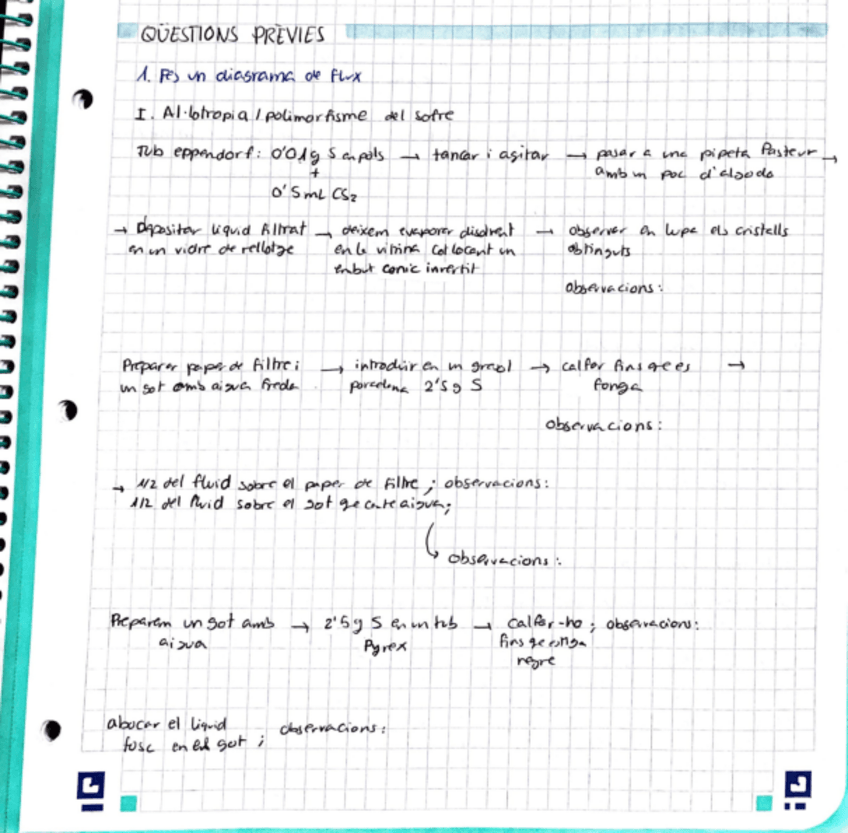 QÜESTIONS PRÈVIES
1. Fes un diagrama de flux
I. Al·lotropia / polimorfisme del sofre
Tub eppendorf: 0'01g S en pols → tancar i agitar → passar a una pipeta Pasteur →
+ amb un poc d'algodó
0'5 mL CS2
→ Depositar líquid filtrat → deixem evaporar dissolvent → observar en lupa els cristalls
en un vidre de rellotge en la vitrina col·locant un obtinguts
embut cònic invertit
observacions:
Preparar paper de filtre i → introduir en un gresol → calfar fins que es →
un got amb aigua freda. porcelana 2'5 g S fonga
observacions:
→ 1/2 del fluid sobre el paper de filtre ; observacions:
1/2 del fluid sobre el got que conté aigua;
observacions:
Preparem un got amb → 2'5 g S en un tub → calfar-ho ; observacions:
aigua Pyrex fins que estiga
negre
abocar el líquid
fosc en el got ; observacions: